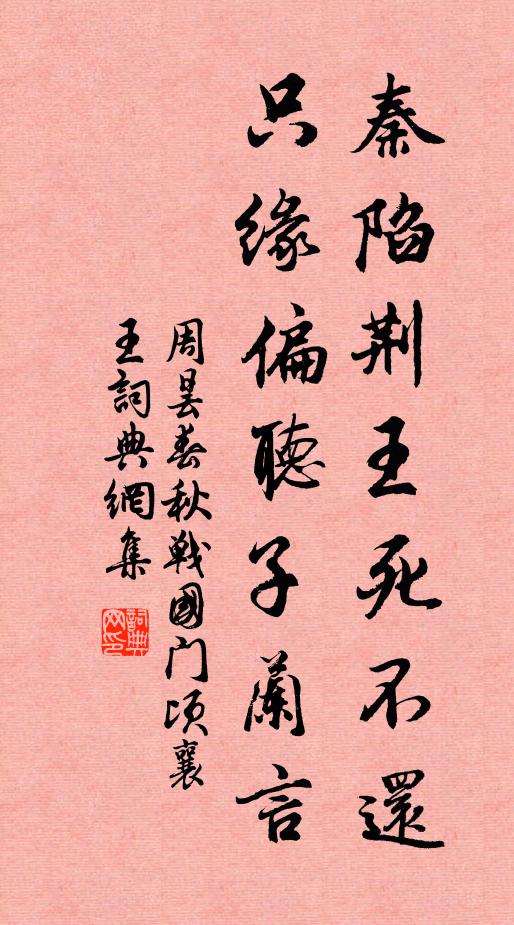 秦陷荆王死不還
只緣偏聽子蘭言
周曇春秋戰國門頃襄
王詞典網集
詞典网印